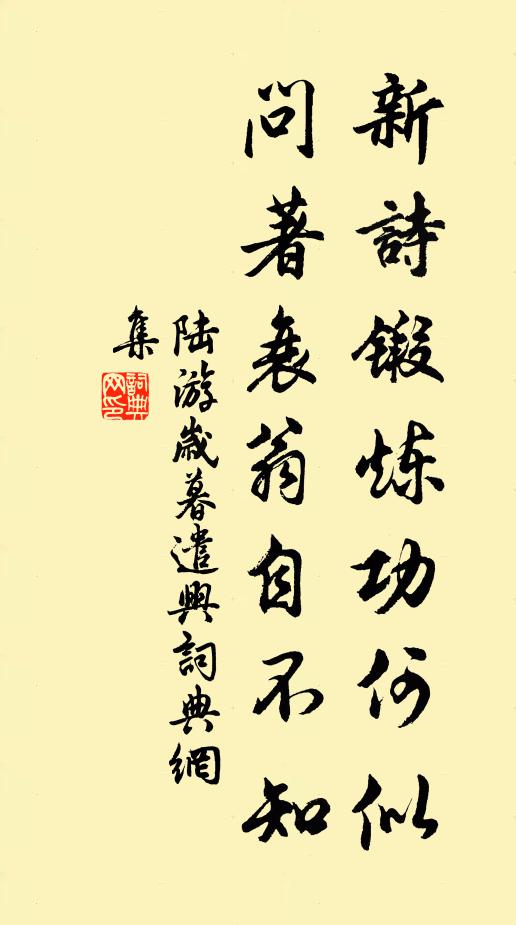 新詩鍛炼功何似
問著衰翁自不知
陆游歲暮遣興詞典網
集
詞典
网印